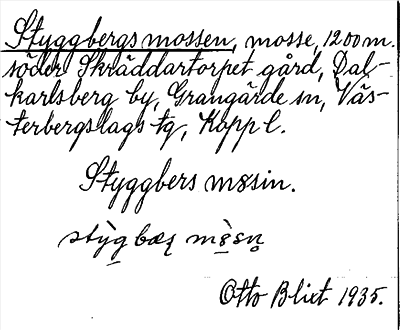 Styggbergsmossen, mosse, 1200 m.
söder Skräddartorpet gård, Dal-
karlsberg by, Grangärde sn, Väs-
terbergslags tg, Kopp l.
Styggbers møsin.
Otto Blixt 1935.